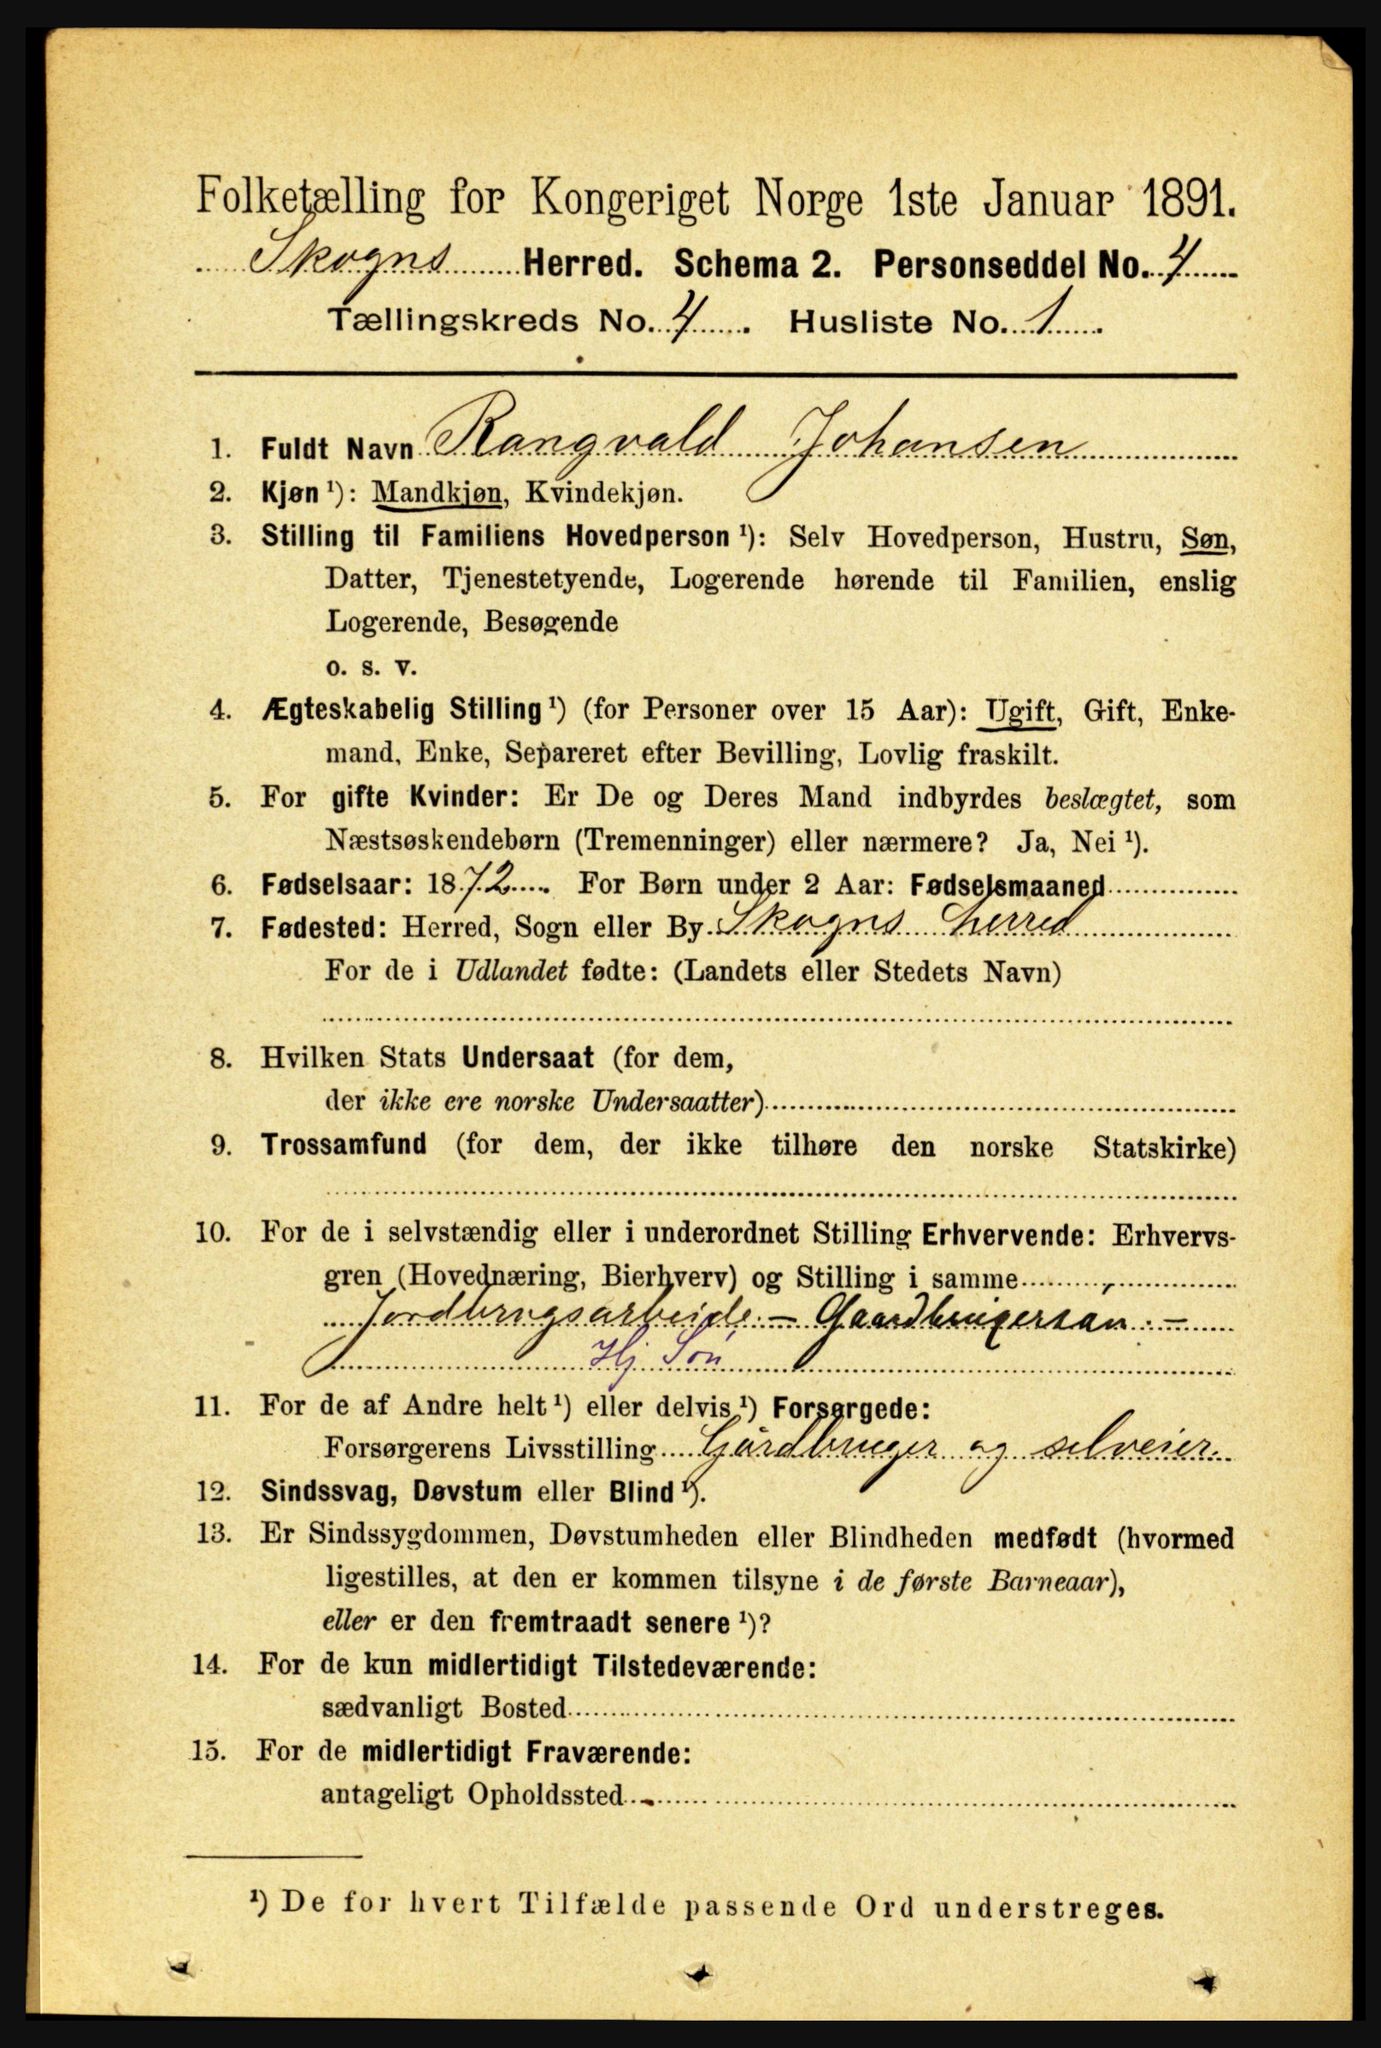 Folketælling for Kongeriget Norge 1ste Januar 1891.
Skogns Herred. Schema 2. Personseddel No. 4
Tællingskreds No. 4. Husliste No. 1.
1. Fuldt Navn Rangvald Johansen
2. Kjøn¹): Mandkjøn, Kvindekjøn.
3. Stilling til Familiens Hovedperson¹): Selv Hovedperson, Hustru, Søn,
Datter, Tjenestetyende, Logerende hørende til Familien, enslig
Logerende, Besøgende
o. s. v.
4. Ægteskabelig Stilling¹) (for Personer over 15 Aar): Ugift, Gift, Enke-
mand, Enke, Separeret efter Bevilling, Lovlig fraskilt.
5. For gifte Kvinder: Er De og Deres Mand indbyrdes beslægtet, som
Næstsøskendebørn (Tremenninger) eller nærmere? Ja, Nei¹).
6. Fødselsaar: 1872. For Børn under 2 Aar: Fødselsmaaned
7. Fødested: Herred, Sogn eller By Skogns herred
For de i Udlandet fødte: (Landets eller Stedets Navn)
8. Hvilken Stats Undersaat (for dem,
der ikke ere norske Undersaatter)
9. Trossamfund (for dem, der ikke tilhøre den norske Statskirke)
10. For de i selvstændig eller i underordnet Stilling Erhvervende: Erhvervs-
gren (Hovednæring, Bierhverv) og Stilling i samme
Jordbrugsarbeide. - Gaardbrugersøn. -
Hj Søn
11. For de af Andre helt¹) eller delvis¹) Forsørgede:
Forsørgerens Livsstilling Gårdbruger og selveier.
12. Sindssvag, Døvstum eller Blind¹).
13. Er Sindssygdommen, Døvstumheden eller Blindheden medfødt (hvormed
ligestilles, at den er kommen tilsyne i de første Barneaar),
eller er den fremtraadt senere¹)?
14. For de kun midlertidigt Tilstedeværende:
sædvanligt Bosted
15. For de midlertidigt Fraværende:
antageligt Opholdssted
¹) De for hvert Tilfælde passende Ord understreges.